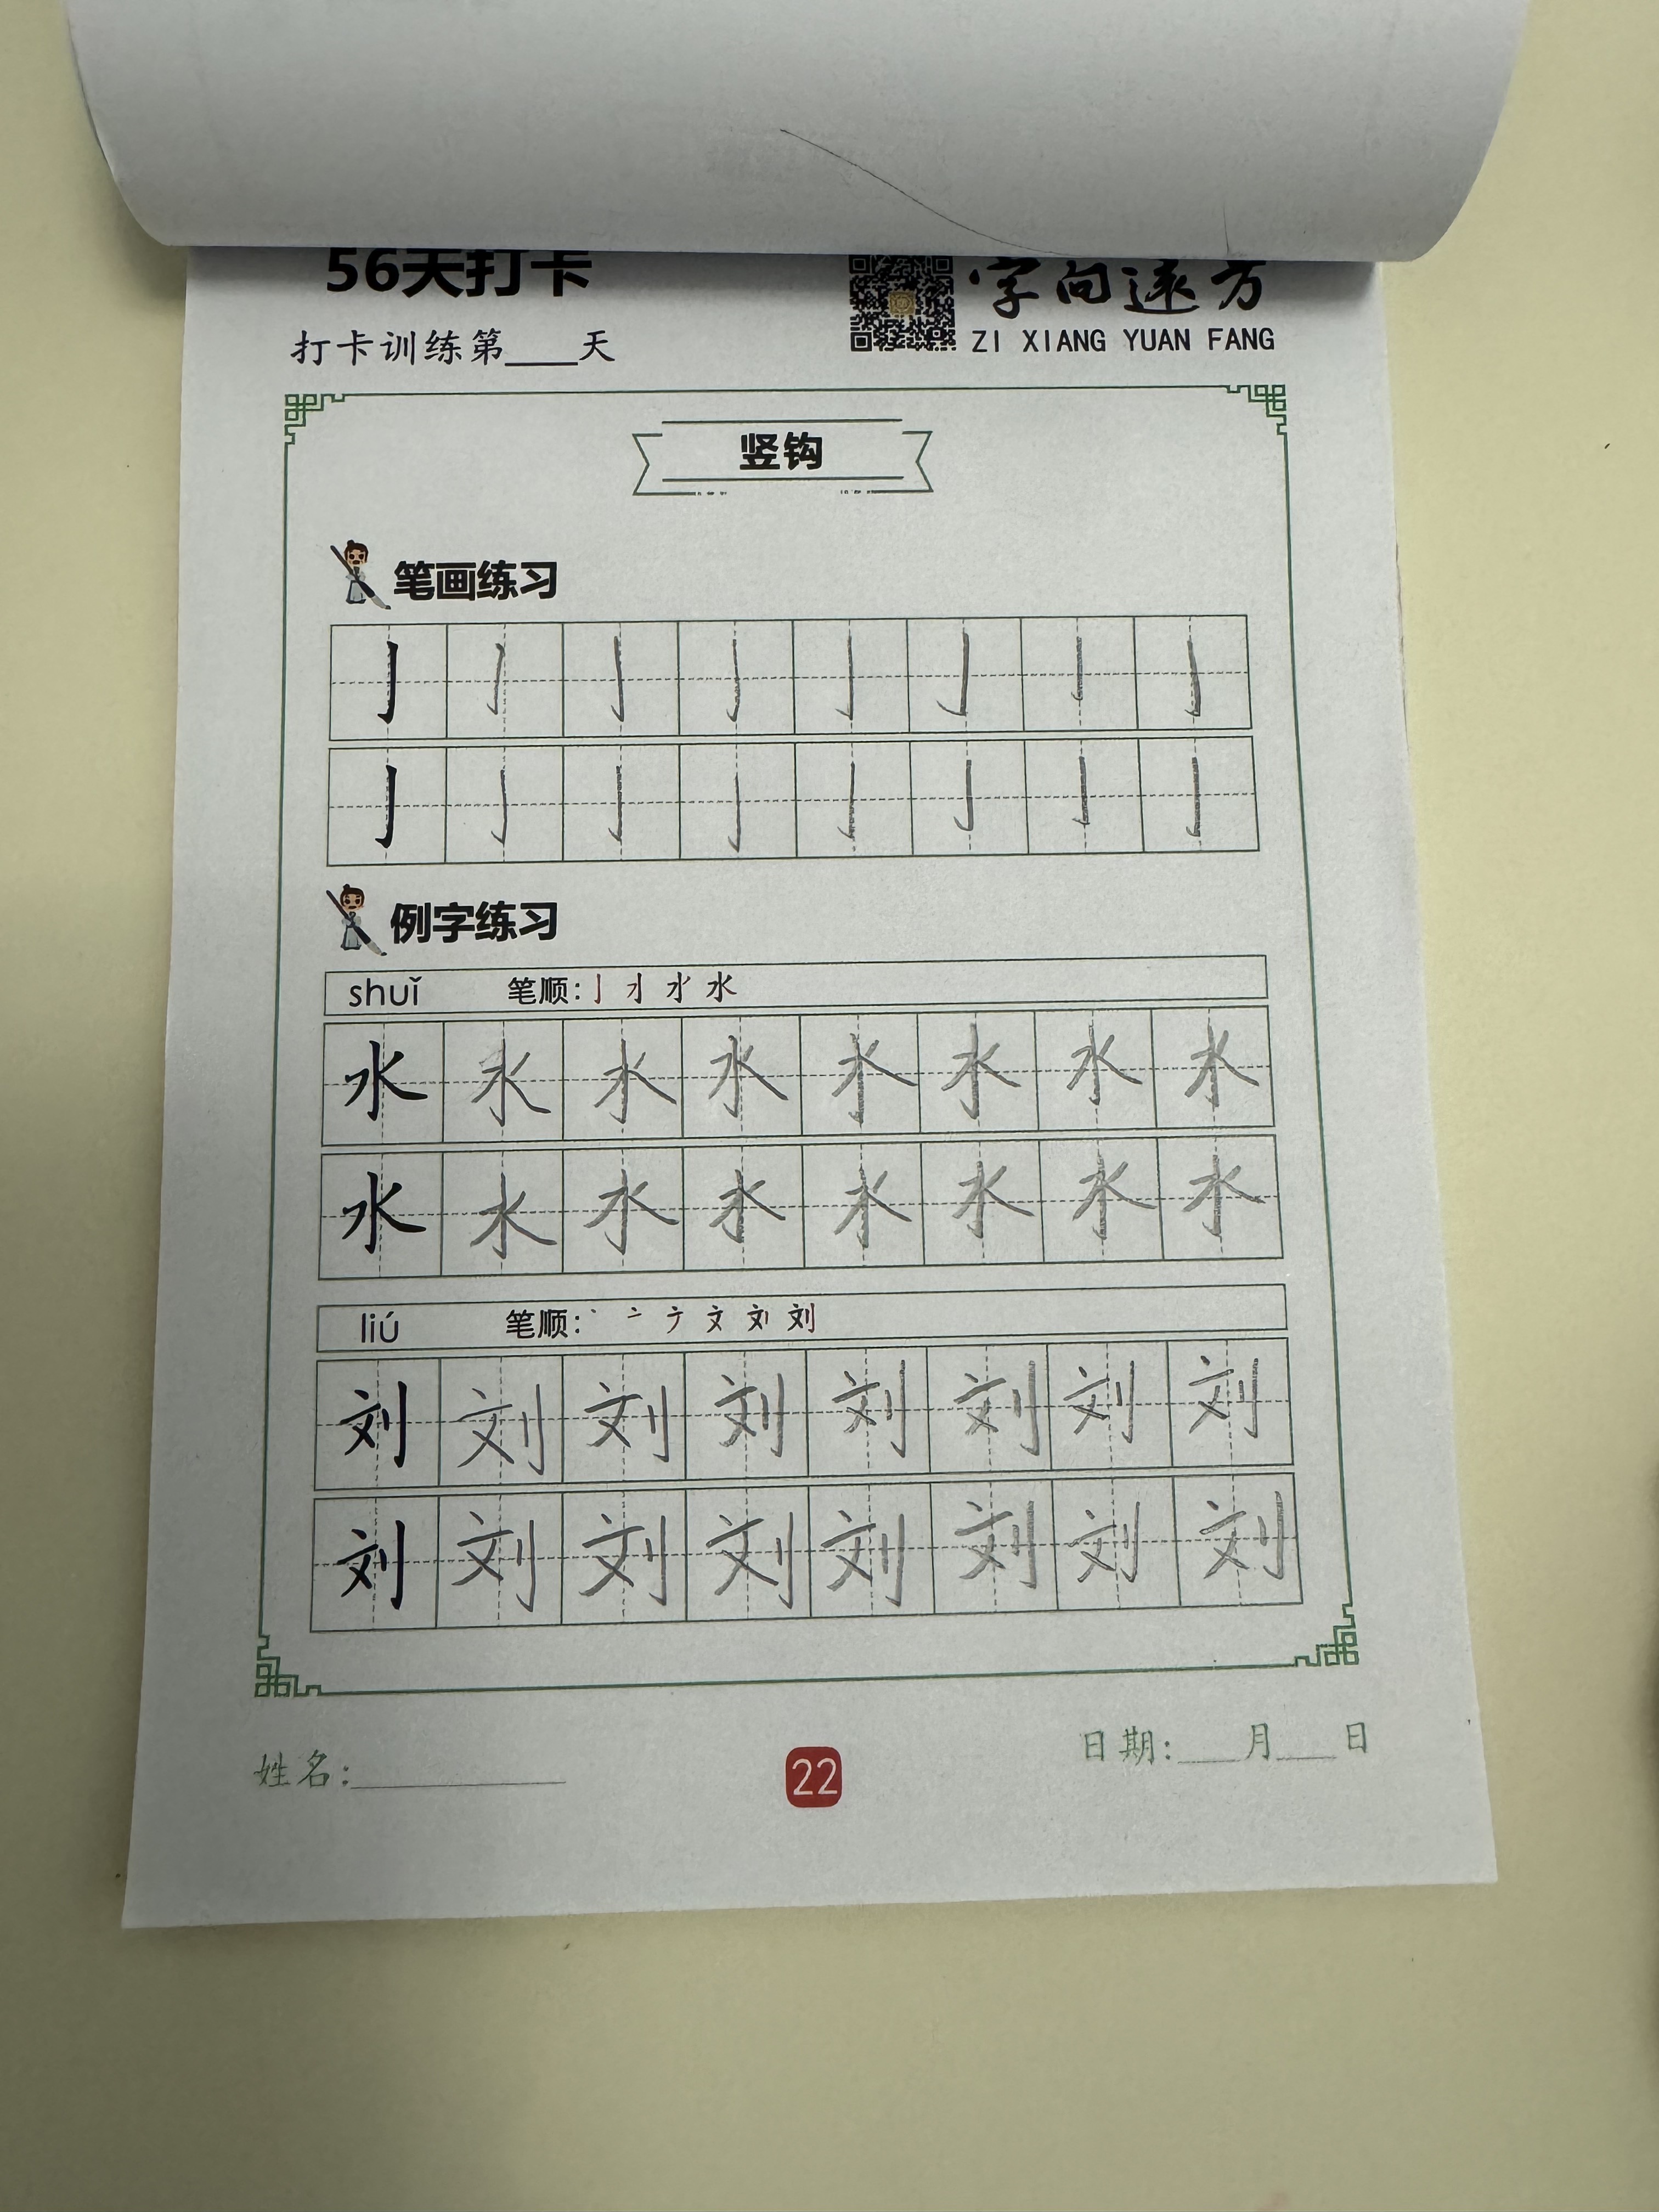 56天打卡
字向远方
打卡训练第____天
ZI XIANG YUAN FANG
竖钩
笔画练习
亅 亅 亅 亅 亅 亅 亅 亅
亅 亅 亅 亅 亅 亅 亅 亅
例字练习
shuǐ 笔顺: 亅 水 水
水 水 水 水 水 水 水 水
水 水 水 水 水 水 水 水
liú 笔顺: 丶 亠 文 刘
刘 刘 刘 刘 刘 刘 刘 刘
刘 刘 刘 刘 刘 刘 刘 刘
姓名:__________
22
日期:___月___日